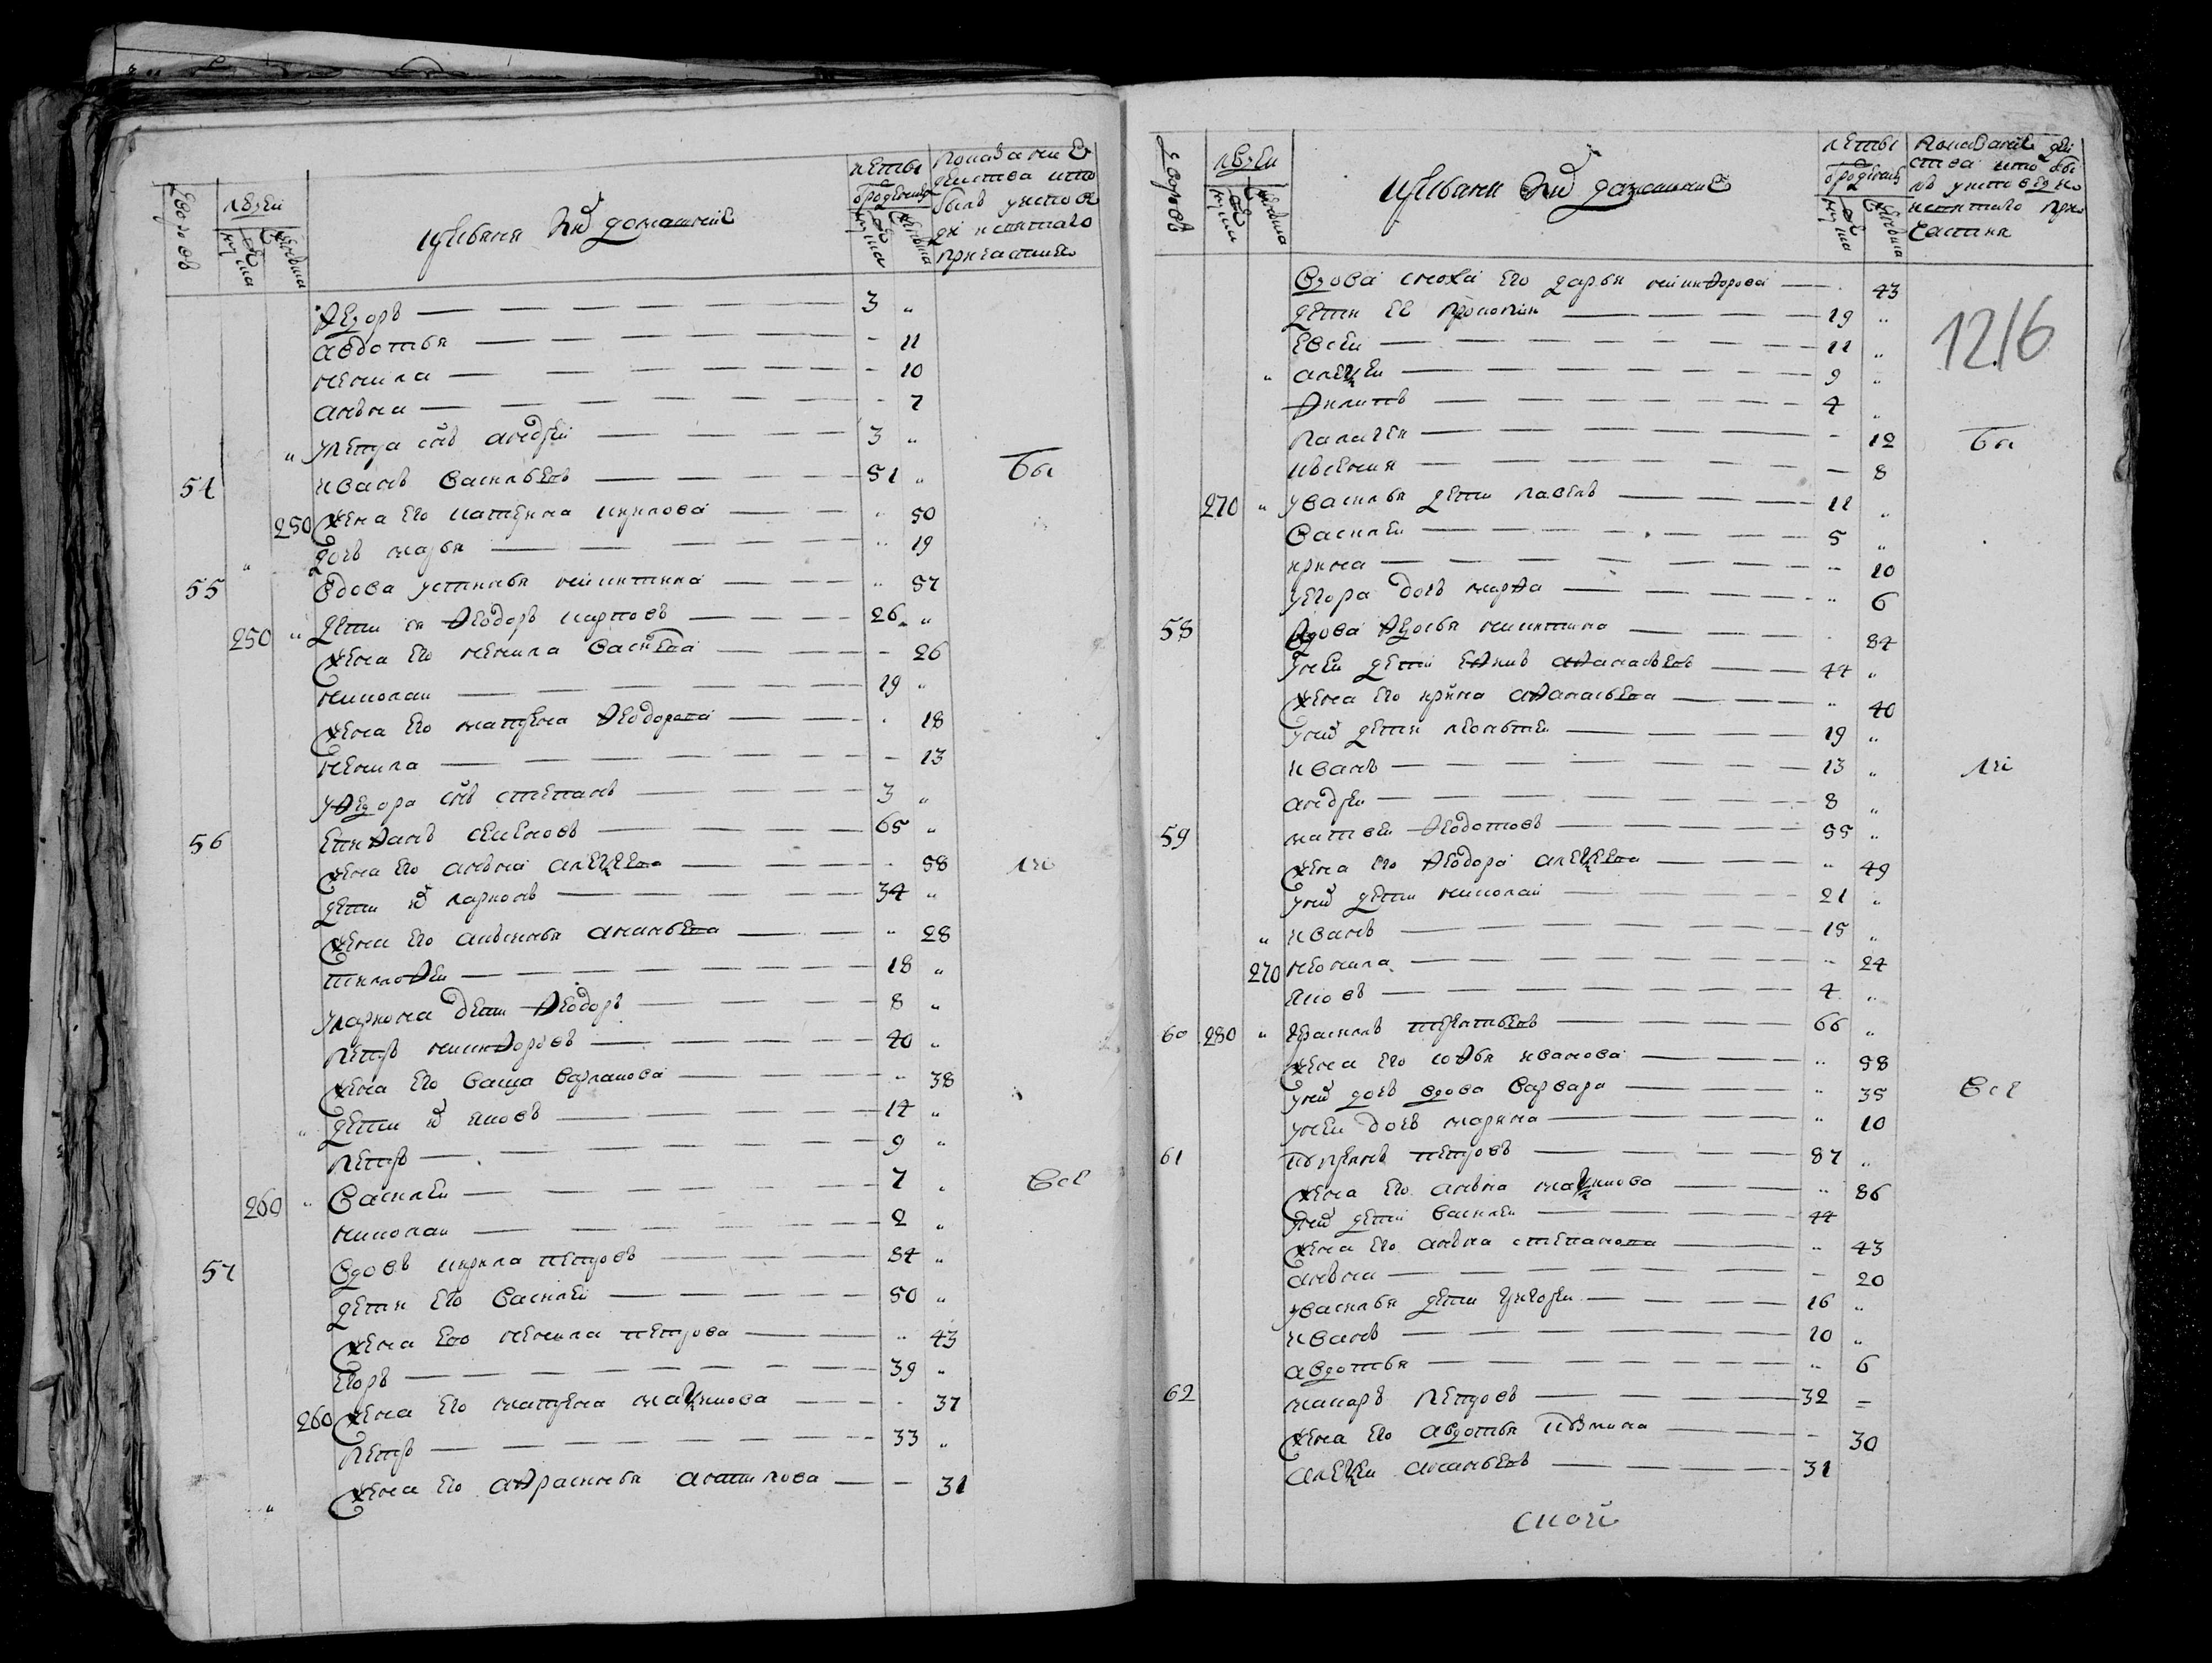 Дворовъ
людей
мужска
женска
и ихъ домашние
летъ
от рождения
мужска
женска
Показание
действа кто
былъ у исповѣ
ди и святаго
причастия
Ѳедоръ 3 "
авдотья - 11
ненила - 10
анна - 7
у петра сынъ андрей 3 "
54 иванъ васильевъ 51 " бы
250 жена его катерина кирилова " 50
дочь марья " 19
55 вдова устинья никитина " 57
250 " дети ея Ѳеодоръ карповъ 26 "
жена его ненила васильева - 26
николай 19 "
жена его матрена Ѳеодорова 18
ненила - 13
у Ѳедора сынъ степанъ 3 "
56 епиѲанъ семеновъ 65 "
жена его анна алексеева 58 ли
дети их ларионъ 34 "
жена его аксинья ананьева " 28
тимоѲей 18 "
у лариона дети Ѳеодоръ 8 "
петръ никиѲоровъ 40 "
жена его васса варламова " 38
" дети их яковъ 14 "
петръ 9 "
260 " василей 7 " все
николай 2 "
57 вдовъ кирила петровъ 84 "
дети его василей 50 "
жена его ненила петрова " 43
егоръ 39 "
260 жена его матрена максимова - 37
петръ 33 "
жена его аѲросинья антипова - 31
Дворовъ
людей
мужска
женска
и ихъ домашние
летъ
от рождения
мужска
женска
Показание дей
ства кто бы
лъ у исповеди и
святаго при
частия
1216
вдова сноха его дарья никиѲорова 43
дети ее прокопий 19 "
евсей 11 "
" алексей 9 "
Ѳилипъ 4 "
палагея - 12 бы
ксения - 8
270 " у василья дети павелъ 11 "
василей 5 "
ирина - 10
у егора дочь марѲа " 6
58 вдова Ѳедосья никитина 84
у ней дети еѲимъ аѲанасьевъ 44 "
жена его ирина аѲанасьева " 40
у них дети леонтей 19 "
иванъ 13 " ли
андрей 8 "
59 матвей Ѳеодотовъ 55 "
жена его Ѳеодора алексеева " 49
у них дети николай 21 "
" иванъ 15 "
270 неонила " 24
яковъ 4 "
60 280 " герасимъ терентьевъ 66 "
жена его соѲья иванова " 58
у них дочь вдова варвара " 35 все
у ней дочь марина " 10
61 петровъ 87 "
жена его анна максимова " 86
у них дети василей 44
жена его анна степанова " 43
анна - 20
у василья дети григорей 16 "
иванъ 10 "
авдотья " 6
62 макаръ петровъ 32 -
жена его авдотья - 30
алексей ананьевъ 31